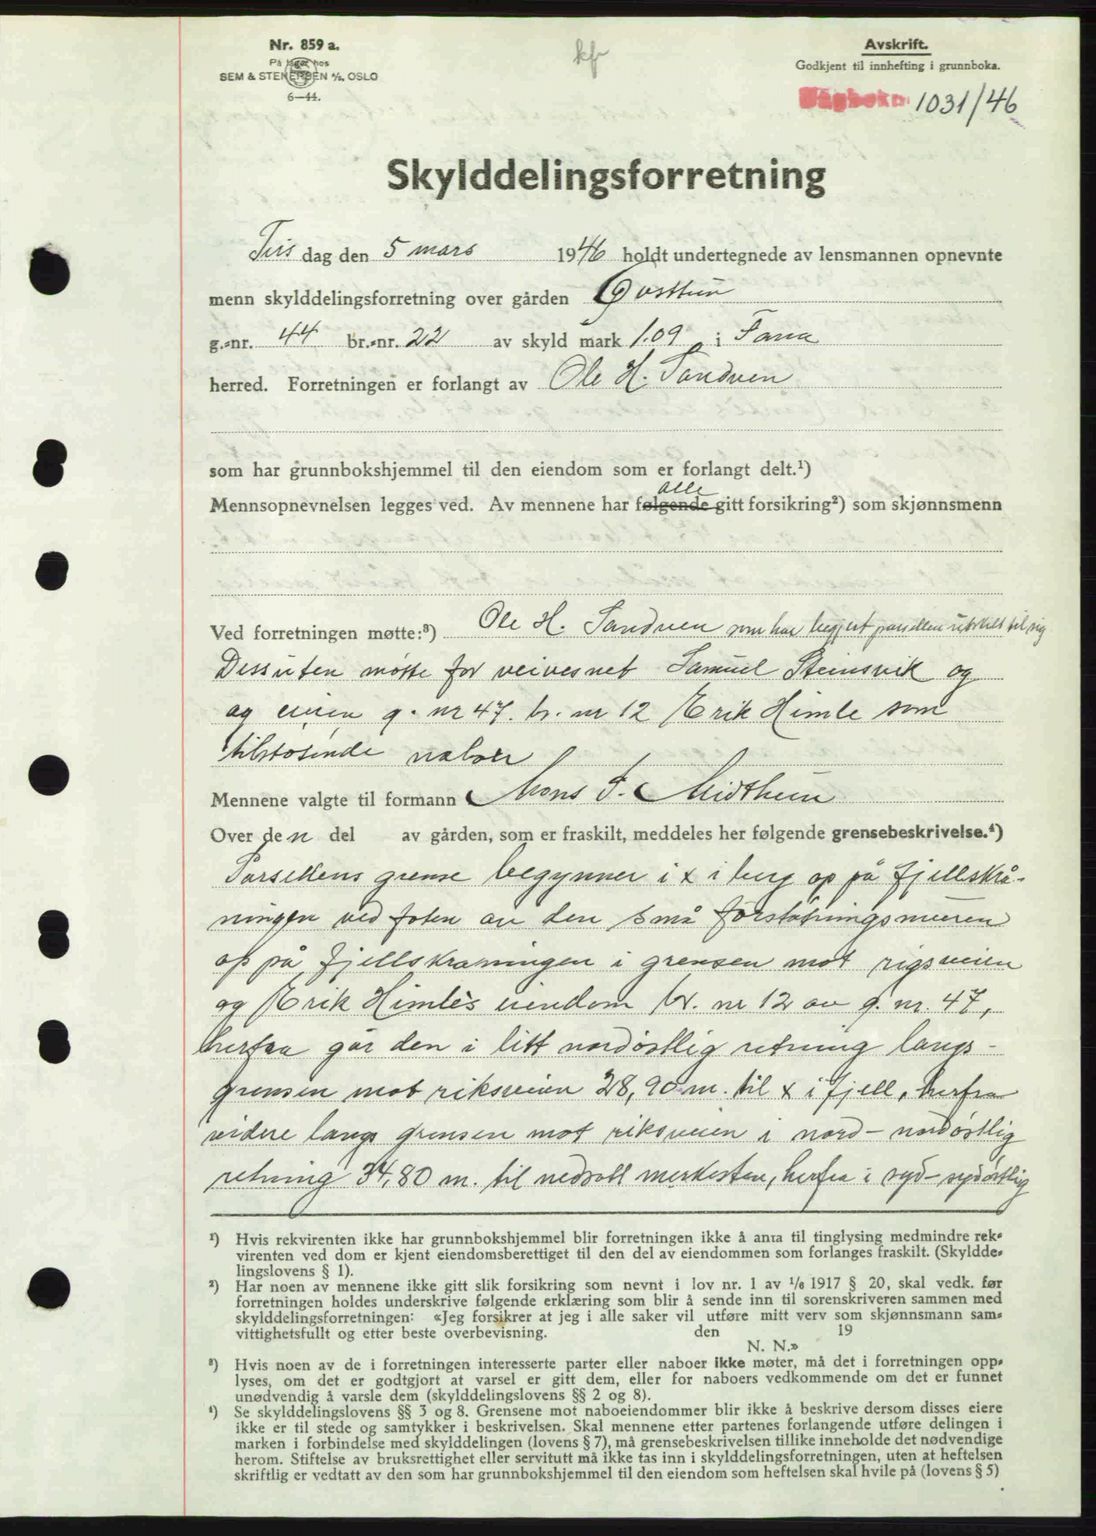 Nr. 859 a.
På lager hos
SEM & STENERSEN A/S, OSLO
6—44.
Avskrift.
Godkjent til innhefting i grunnboka.
Dagbokn 1031/46
Skylddelingsforretning
Tirs dag den 5 mars 1946 holdt undertegnede av lensmannen opnevnte
menn skylddelingsforretning over gården
g.-nr. 44 br.-nr. 22 av skyld mark 1.09 i Fana
herred. Forretningen er forlangt av Ole H. Sandven
som har grunnbokshjemmel til den eiendom som er forlangt delt.¹)
alle
Mennsopnevnelsen legges ved. Av mennene har følgende gitt forsikring²) som skjønnsmenn
Ved forretningen møtte:³) Ole H. Sandven som har begjert parsellen utskilt til sig
Dessuten møtte for veivesnet Samuel Steinsvik og
og eieren g. nr 47. br. nr 12 Erik Himle som
tilstøtende naboer
Mennene valgte til formann Mons F. Midthun
Over den del av gården, som er fraskilt, meddeles her følgende grensebeskrivelse.⁴)
Parsellens grense begynner i x i berg op på fjellskrå-
ningen ved foten av den små forstøtningsmuren
op på fjellskraaningen i grensen mot rigsveien
og Erik Himle's eiendom br. nr 12 av g. nr. 47,
herfra går den i litt nordøstlig retning langs-
grensen mot riksveien 28,90 m. til x i fjell, herfra
videre langs grensen mot riksveien i nord-nordøstlig
retning 34,80 m. til nedsatt merkesten, herfra i syd-sydøstlig
¹) Hvis rekvirenten ikke har grunnbokshjemmel blir forretningen ikke å anta til tinglysing medmindre rek-
virenten ved dom er kjent eiendomsberettiget til den del av eiendommen som forlanges fraskilt. (Skyldde-
lingslovens § 1).
²) Har noen av mennene ikke gitt slik forsikring som nevnt i lov nr. 1 av 1/6 1917 § 20, skal vedk. før
forretningen holdes underskrive følgende erklæring som blir å sende inn til sorenskriveren sammen med
skylddelingsforretningen: «Jeg forsikrer at jeg i alle saker vil utføre mitt verv som skjønnsmann sam-
vittighetsfullt og etter beste overbevisning. den 19
N. N.»
³) Hvis noen av de i forretningen interesserte parter eller naboer ikke møter, må det i forretningen opp-
lyses, om det er godtgjort at varsel er gitt dem, eller for naboers vedkommende om det er funnet
unødvendig å varsle dem (skylddelingslovens §§ 2 og 8).
⁴) Se skylddelingslovens §§ 3 og 8. Grensene mot naboeiendommer blir ikke å beskrive dersom disses eiere
ikke er til stede og samtykker i beskrivelsen. Skal mennene etter partenes forlangende utføre delingen i
marken i forbindelse med skylddelingen (lovens § 7), må grensebeskrivelsen tillike inneholde det nødvendige
herom. Stiftelse av bruksrettighet eller servitutt må ikke tas inn i skylddelingsforretningen, uten at heftelsen
skriftlig er vedtatt av den som har grunnbokshjemmel til den eiendom som heftelsen skal hvile på (lovens § 5)